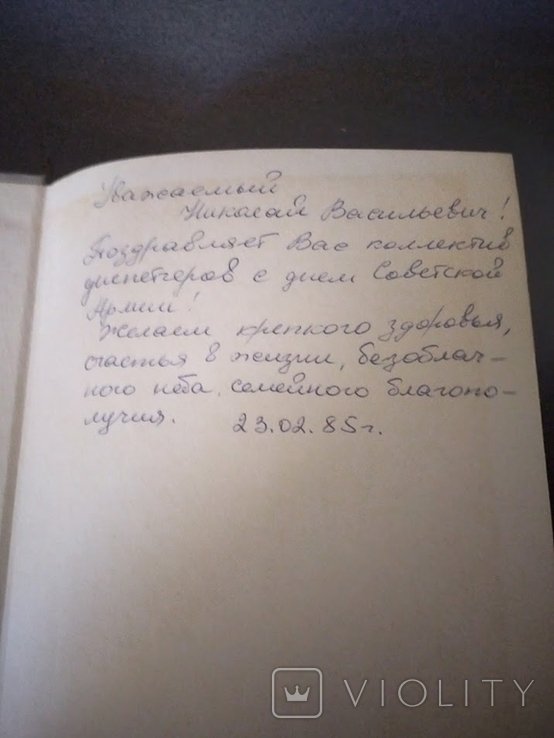 Уважаемый
Николай Васильевич!
Поздравляет Вас коллектив
диспетчеров с днем Советской
Армии!
Желаем крепкого здоровья,
счастья в жизни, безоблач-
ного неба, семейного благопо-
лучия. 23.02.85г.
VIOLITY